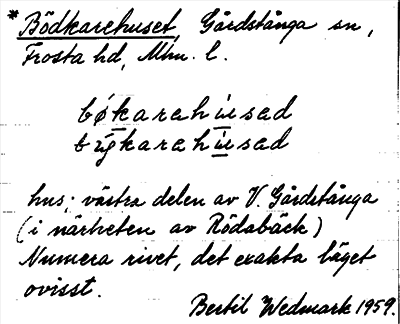 * Bödkarehuset, Gårdstånga sn,
Frosta hd, Mlm. l.
bøkarehusad
bygkarehusad
hus; västra delen av V. Gårdstånga
(i närheten av Rödabäck)
Numera rivet, det exakta läget
ovisst.
Bertil Wedmark 1959.